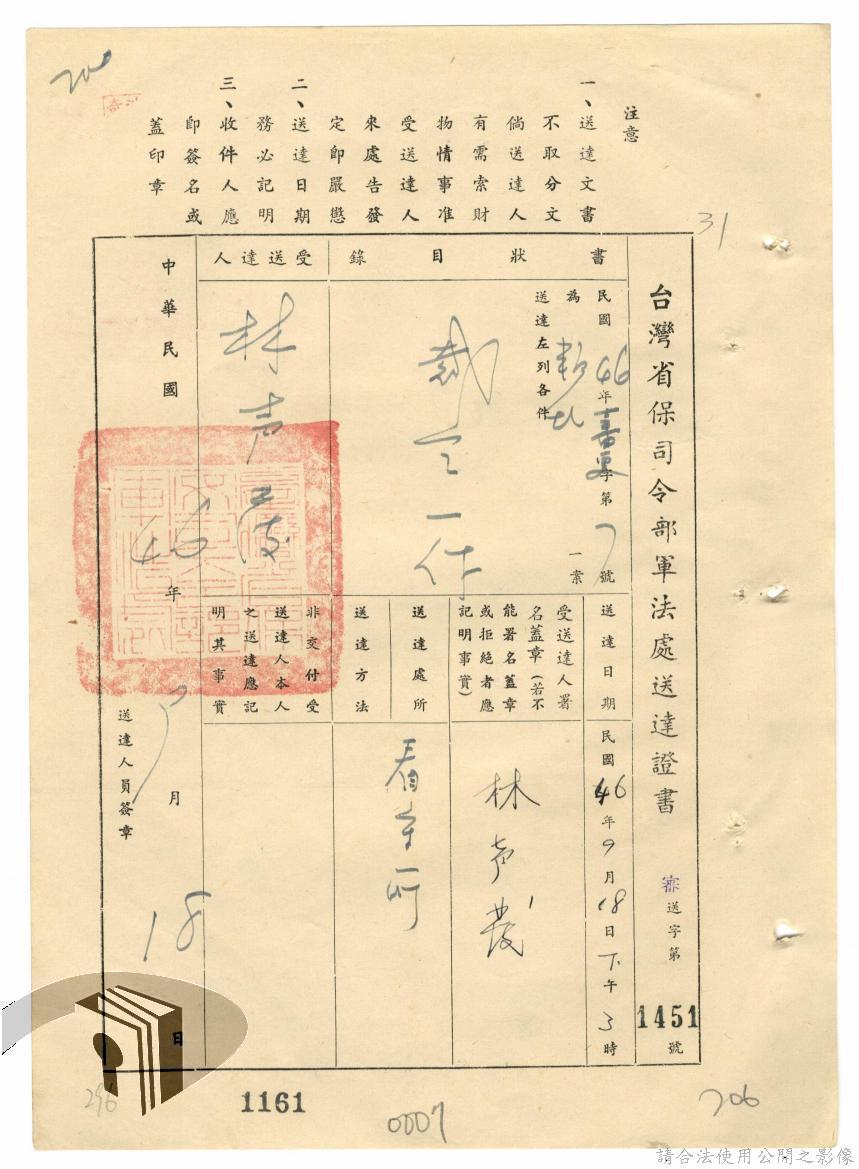 注意
一、送達文書
不取分文
倘送達人
有需索財
物情事准
受送達人
來處告發
定即嚴懲
二、送達日期
務必記明
三、收件人應
即簽名或
蓋印章
31
台灣省保司令部軍法處送達證書
審送字第1451號
書狀目錄
民國46年嘉更字第7號
為叛亂一案
送達左列各件
裁定一件
受送達人
林声發
送達日期
民國46年9月18日下午3時
受送達人署
名蓋章(若不
能署名蓋章
或拒絕者應
記明事實)
林声發
送達處所
看守所
送達方法
非交付受
送達人本人
之送達應記
明其事實
中華民國46年9月18日
送達人員簽章
296
1161
0007
206
請合法使用公開之影像